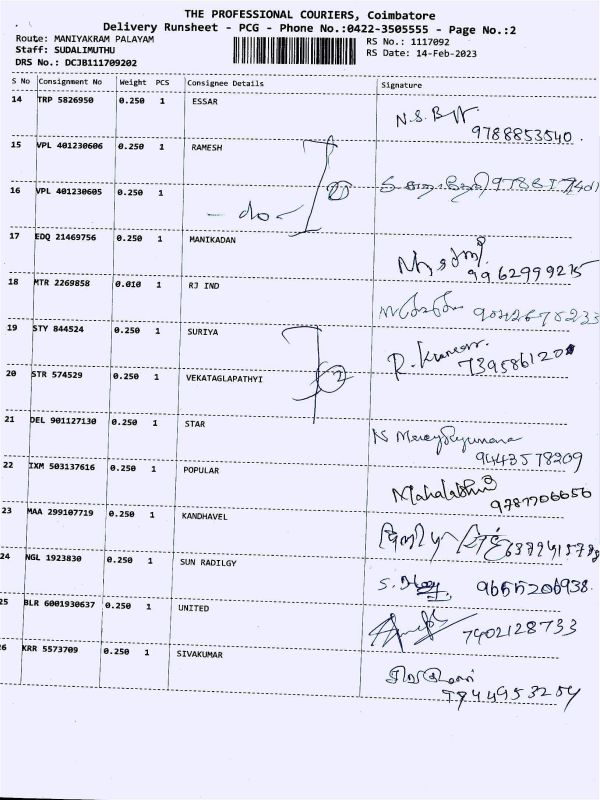 THE PROFESSIONAL COURIERS, Coimbatore
Delivery Runsheet - PCG - Phone No.:0422-3505555 - Page No.:2
Route: MANIYAKRAM PALAYAM
RS No.: 1117092
Staff: SUDALIMUTHU
RS Date: 14-Feb-2023
DRS No.: DCJB111709202
S No Consignment No Weight PCS Consignee Details Signature
14 TRP 5826950 0.250 1 ESSAR
9788853540.
15 VPL 401230606 0.250 1 RAMESH
16 VPL 401230605 0.250 1
- do -
17 EDQ 21469756 0.250 1 MANIKADAN
9962999215
18 MTR 2269858 0.010 1 RJ IND
9042678233
19 STY 844524 0.250 1 SURIYA
R. Kumar.
20 STR 574529 0.250 1 VEKATAGLAPATHYI
2
21 DEL 901127130 0.250 1 STAR
9443578209
22 IXM 503137616 0.250 1 POPULAR
9787706656
23 MAA 299107719 0.250 1 KANDHAVEL
24 NGL 1923830 0.250 1 SUN RADILGY
9655206938.
25 BLR 6001930637 0.250 1 UNITED
7402128733
26 KRR 5573709 0.250 1 SIVAKUMAR